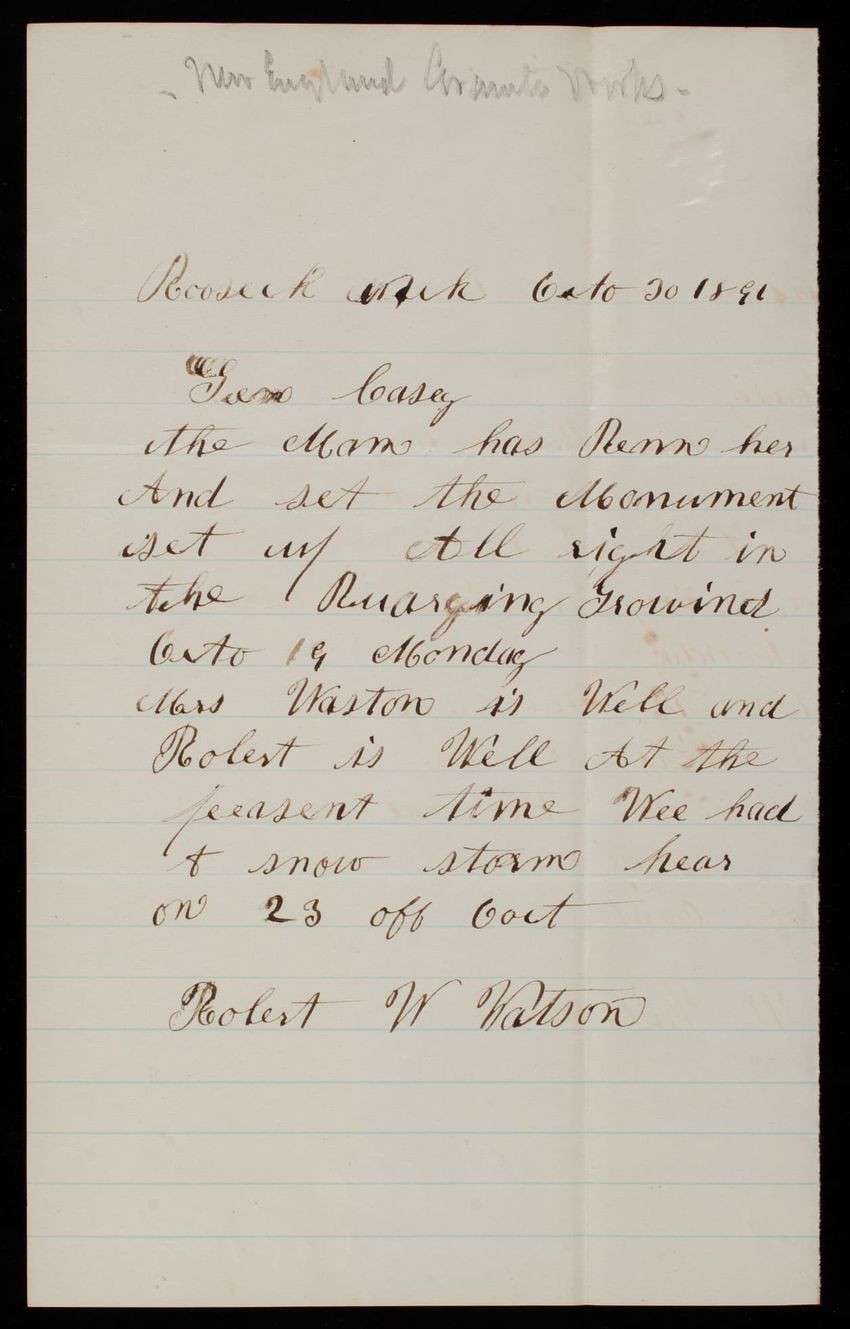 - New England Granite Works -
Rooseck Octo 30 1891
Gen Casey
the Mam has Renn her
And set the Monument
set up All right in
the Buarging Growind
Octo 19 Monday
Mrs Waston is Well and
Robert is Well At the
peeasent time Wee had
A snow storm hear
on 23 off Coct
Robert W Watson